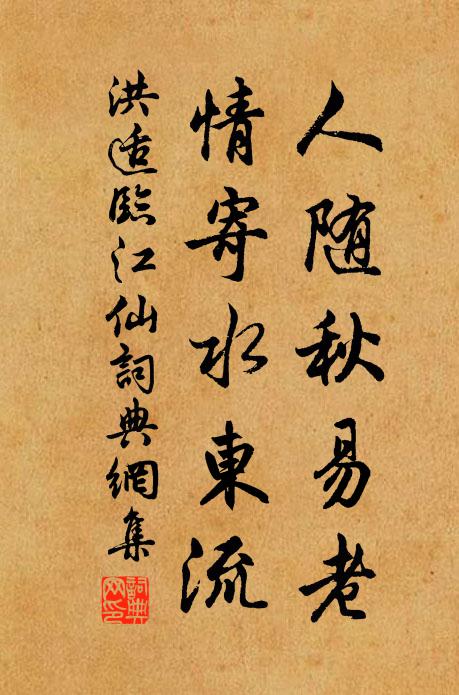 人随秋易老
情寄水東流
洪适臨江仙詞典網集
詞典
网印